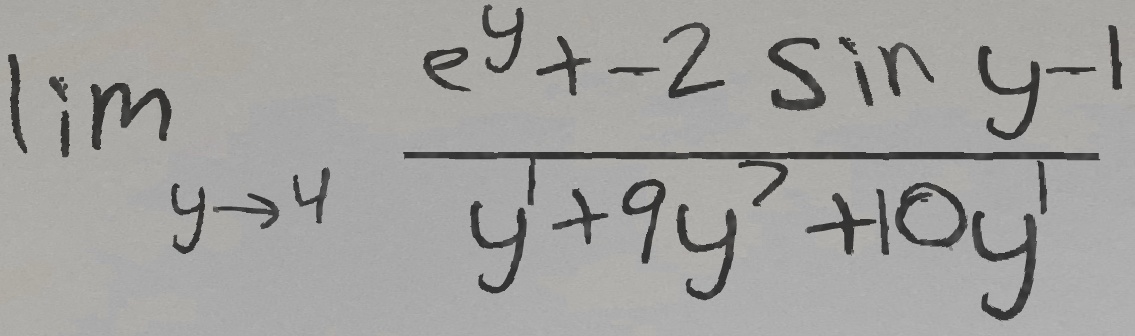 \lim_{y \to 4} \frac{e^y + -2 \sin y - 1}{y^1 + 9y^7 + 10y^1}